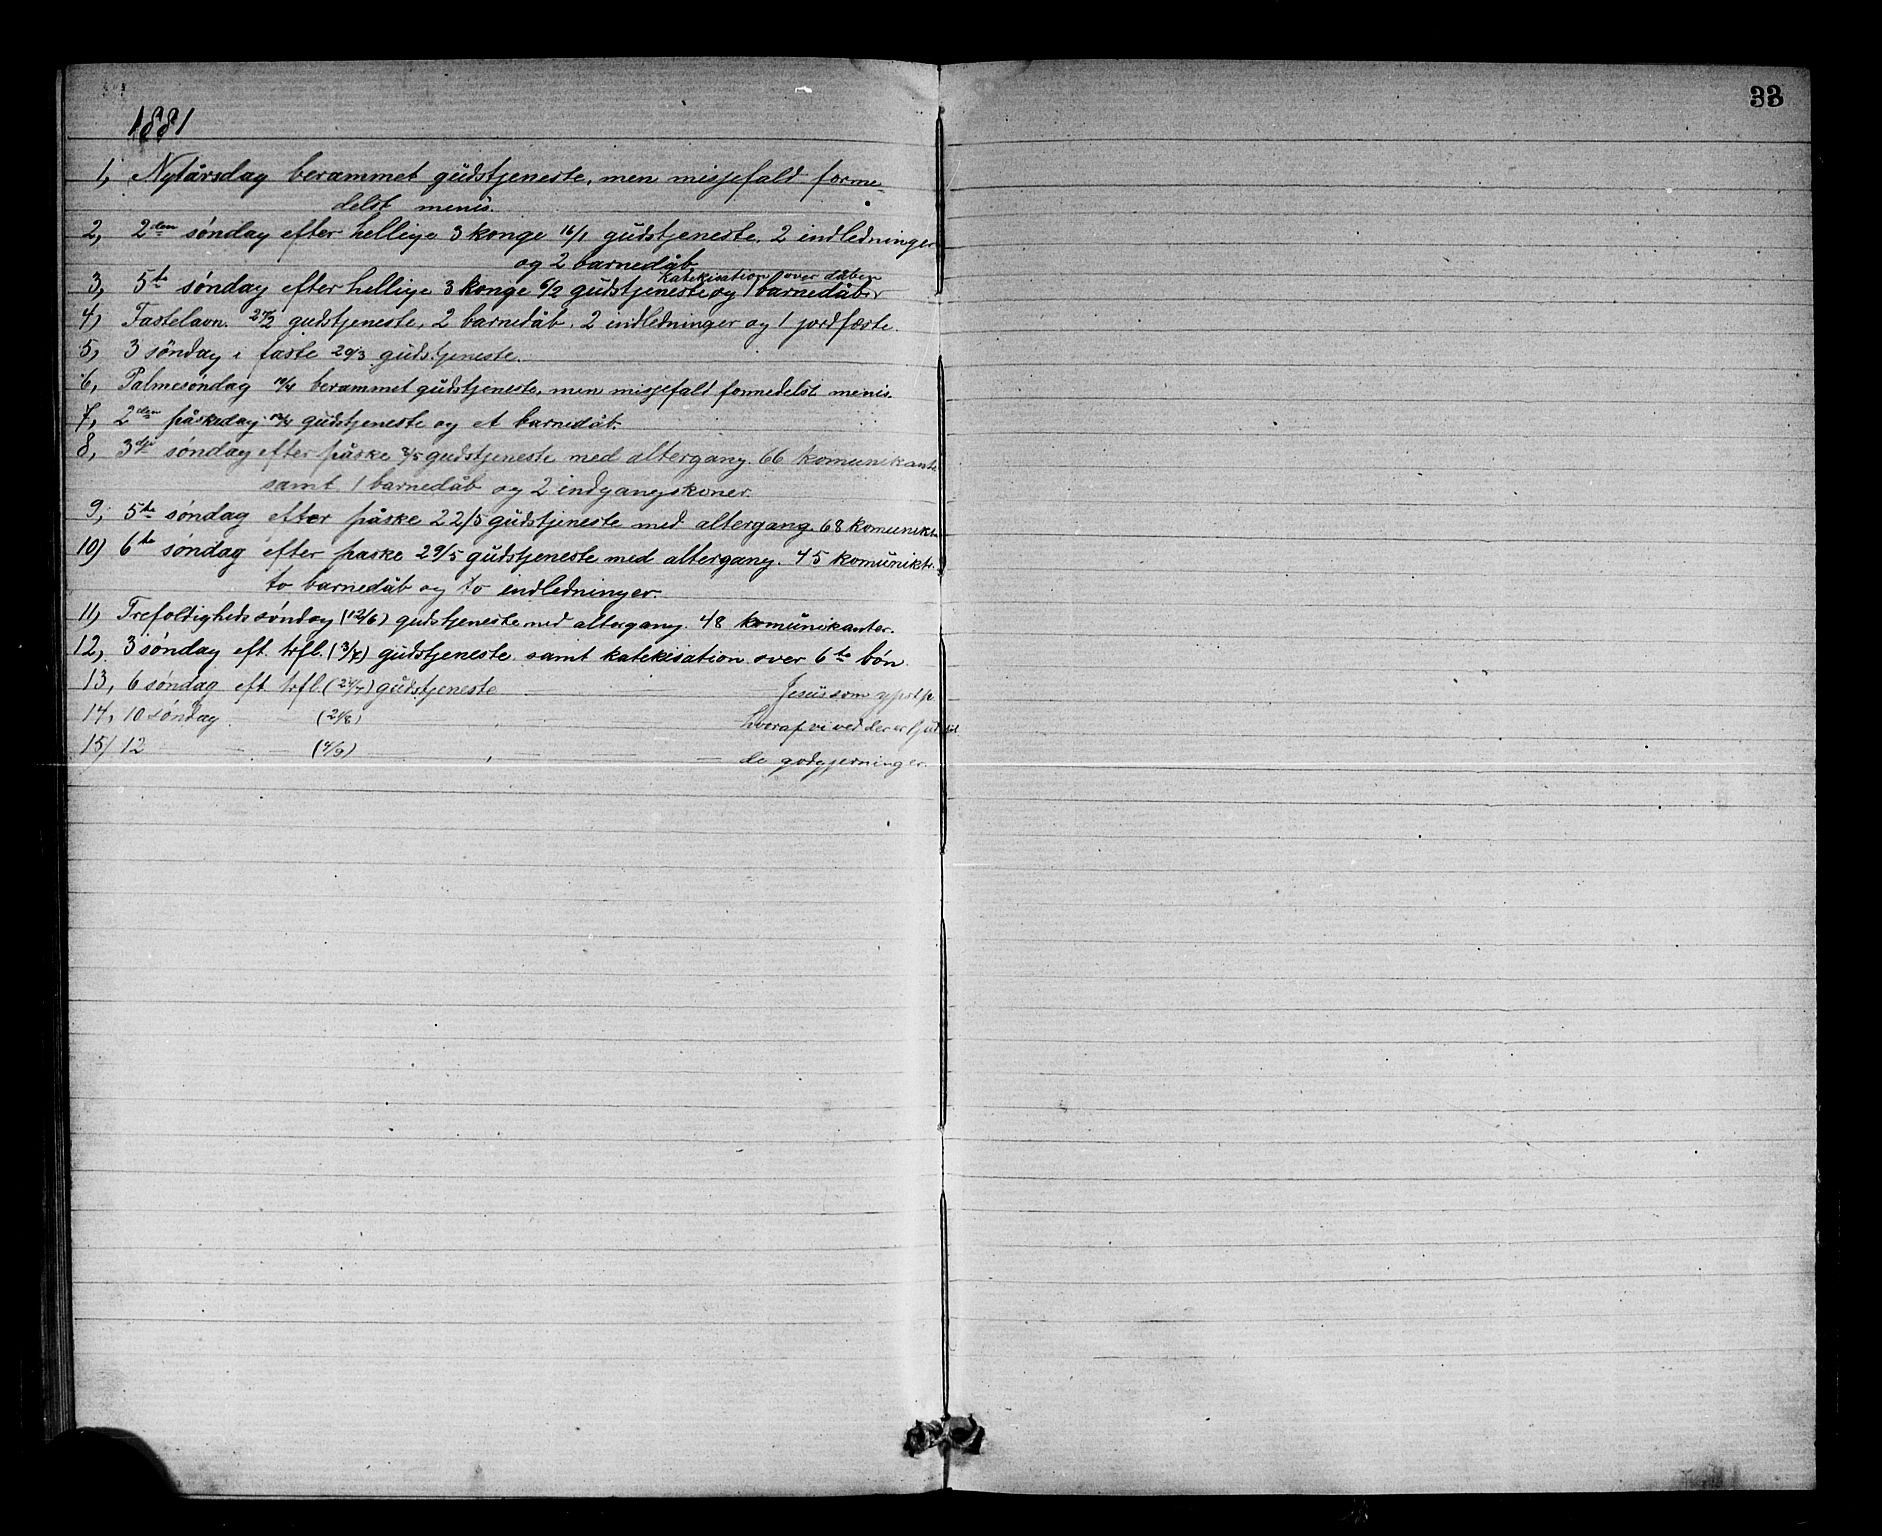 33
1881
1, Nytårsdag berammet gudstjeneste, men misjefald forme-
delst menis.
2, 2den søndag efter hellige 3 konge 16/1 gudstjeneste, 2 indledninger
og 2 barnedåb
katekisation over dåben
3, 5te søndag efter hellige 3 konge 6/2 gudstjeneste og 1 barnedåb
4) Fastelavn. 27/2 gudstjeneste, 2 barnedåb, 2 indledninger og 1 jordfæste.
5, 3 søndag i faste 20/3 gudstjeneste.
6, Palmesøndag 10/4 berammet gudstjeneste, men misjefald formedelst menis.
7, 2den påskedag 18/4 gudstjeneste og et barnedåb.
8, 3die søndag efter påske 8/5 gudstjeneste med altergang. 66 komunikante
samt 1 barnedåb og 2 indgangskoner.
9, 5te søndag efter påske 22/5 gudstjeneste med altergang 68 komunikt.
10) 6te søndag efter paske 29/5 gudstjeneste med altergang. 45 komunikt.
to barnedåb og to indledninger.
11) Trefoldigheds søndag (12/6) gudstjeneste med altergang. 48 komunikanter.
12, 3 søndag eft. trfl. (3/7) gudstjeneste samt katekisation over 6te bøn.
13, 6 søndag eft. trfl. (24/7) gudstjeneste — — Jesus som yprstp.
14, 10 søndag — (21/8) hvoraf vi ved der er
15/ 12 — — (4/9) — — de godgjerninger.